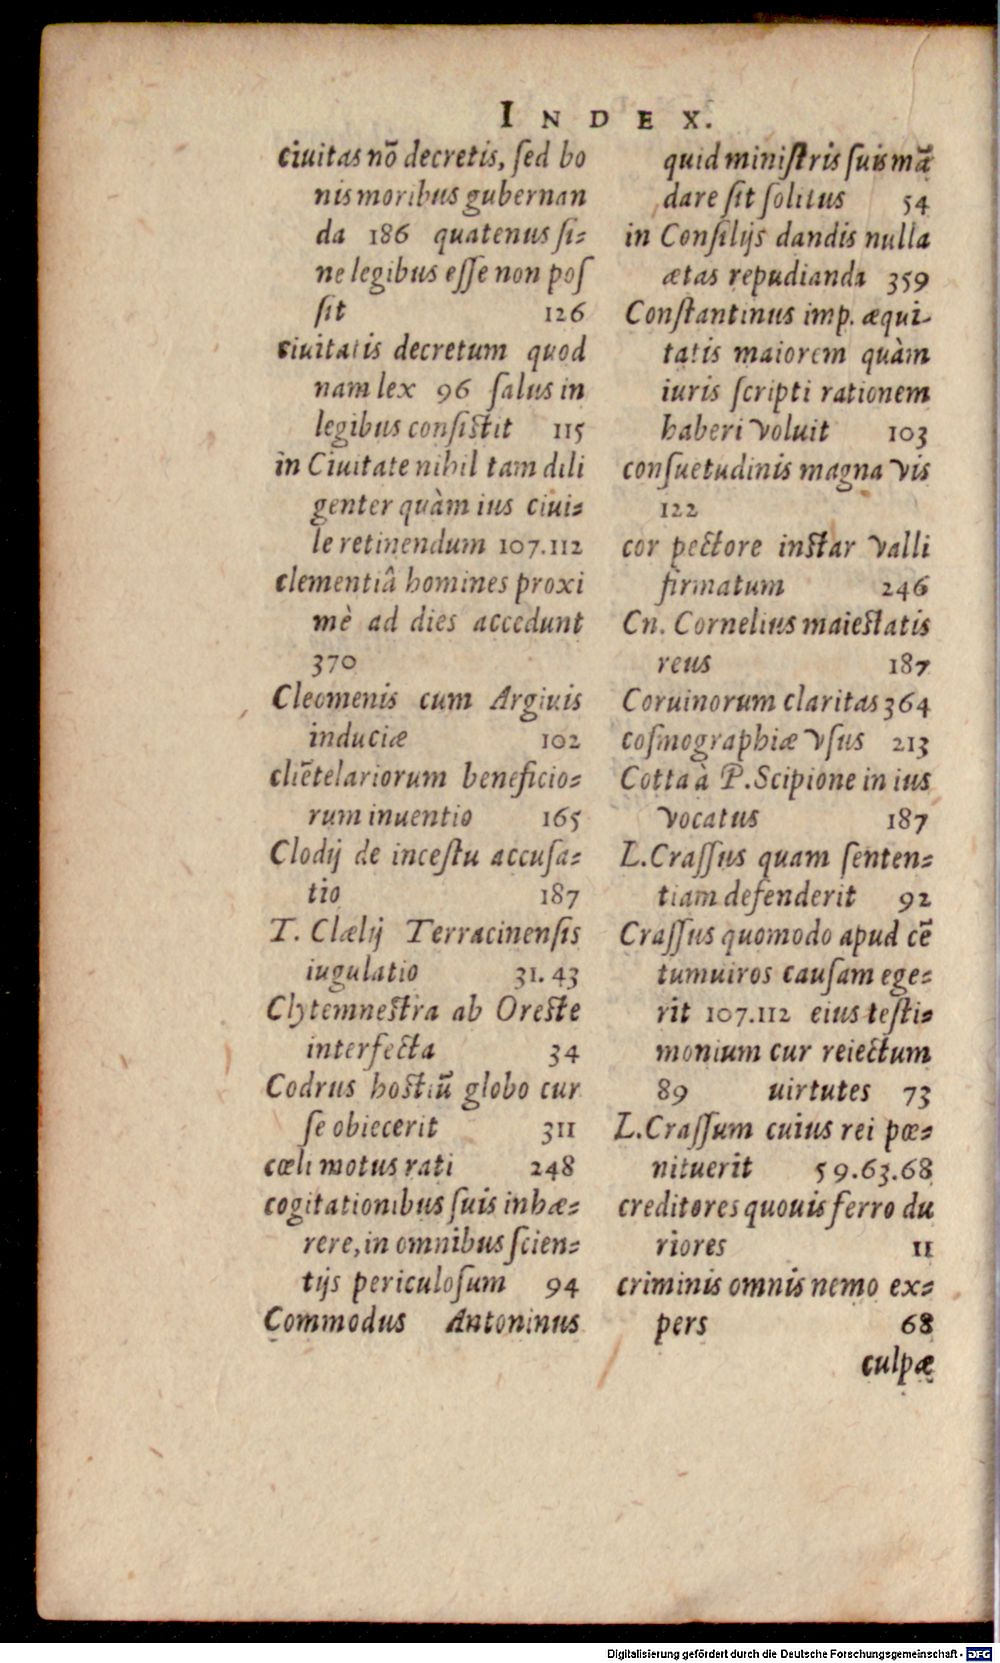 INDEX.
ciuitas nõ decretis, ſed bo
nis moribus gubernan
da 186 quatenus ſi=
ne legibus eſſe non poſ
ſit 126
ciuitatis decretum quod
nam lex 96 ſalus in
legibus conſiſtit 115
in Ciuitate nihil tam dili
genter quàm ius ciui=
le retinendum 107.112
clementiâ homines proxi
mè ad dies accedunt
370
Cleomenis cum Argiuis
induciæ 102
cliẽtelariorum beneficio=
rum inuentio 165
Clodij de inceſtu accuſa=
tio 187
T. Clælij Terracinenſis
iugulatio 31. 43
Clytemneſtra ab Oreſte
interfecta 34
Codrus hoſtiũ globo cur
ſe obiecerit 311
cœli motus rati 248
cogitationibus ſuis inhæ=
rere, in omnibus ſcien=
tijs periculoſum 94
Commodus Antoninus
quid miniſtris ſuis mã
dare ſit ſolitus 54
in Conſilijs dandis nulla
ætas repudianda 359
Conſtantinus imp. æqui-
tatis maiorem quàm
iuris ſcripti rationem
haberi voluit 103
conſuetudinis magna vis
122
cor pectore inſtar valli
firmatum 246
Cn. Cornelius maieſtatis
reus 187
Coruinorum claritas 364
coſmographiæ vſus 213
Cotta à P. Scipione in ius
vocatus 187
L. Craſſus quam ſenten=
tiam defenderit 92
Craſſus quomodo apud cẽ
tumuiros cauſam ege=
rit 107.112 eius teſti=
monium cur reiectum
89 uirtutes 73
L. Craſſum cuius rei pœ=
nituerit 59.63.68
creditores quouis ferro du
riores 11
criminis omnis nemo ex=
pers 68
culpæ
Digitalisierung gefördert durch die Deutsche Forschungsgemeinschaft - DFG